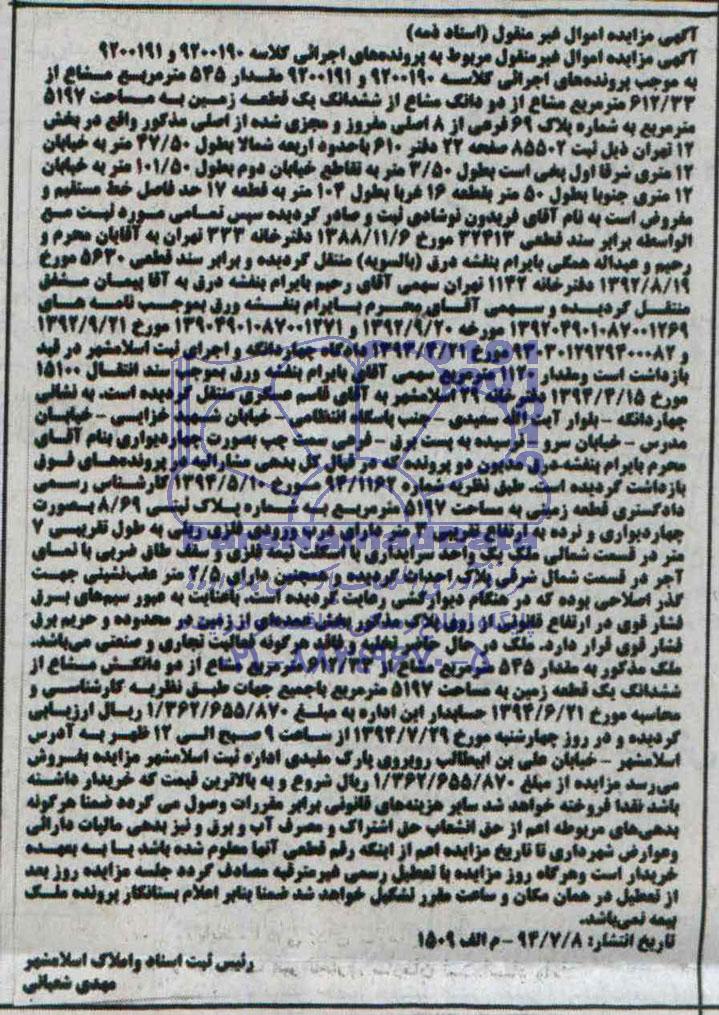 آگهی مزایده اموال غیر منقول (اسناد ذمه)
آگهی مزایده اموال غیرمنقول مربوط به پرونده‌های اجرائی کلاسه ۹۲۰۰۱۹۰ و ۹۲۰۰۱۹۱
به موجب پرونده‌های اجرائی کلاسه ۹۲۰۰۱۹۰ و ۹۲۰۰۱۹۱ مقدار ۵۴۵ مترمربع مشاع از
۶۱۲/۳۳ مترمربع مشاع از دو دانگ مشاع از ششدانگ یک قطعه زمین به مساحت ۵۱۹۷
مترمربع به شماره پلاک ۶۹ فرعی از ۸ اصلی مفروز و مجزی شده از اصلی مذکور واقع در بخش
۱۲ تهران ذیل ثبت ۸۵۵۰۲ صفحه ۲۲ دفتر ۶۱۰ باحدود اربعه شمالا بطول ۴۷/۵۰ متر به خیابان
۱۲ متری شرقا اول پخی است بطول ۳/۵۰ متر به تقاطع خیابان دوم بطول ۱۰۱/۵۰ متر به خیابان
۱۲ متری جنوبا بطول ۵۰ متر بقطعه ۱۶ غربا بطول ۱۰۴ متر به قطعه ۱۷ حد فاصل خط مستقیم و
مفروض است به نام آقای فریدون نوشادی ثبت و صادر گردیده سپس تمامی مورد ثبت مع
الواسطه برابر سند قطعی ۳۲۴۱۳ مورخ ۱۳۸۸/۱۱/۶ دفترخانه ۳۳۳ تهران به آقایان محرم و
رحیم و عبداله همگی بایرام بنفشه درق (بالسویه) منتقل گردیده و برابر سند قطعی ۵۶۳۰ مورخ
۱۳۹۲/۸/۱۹ دفترخانه ۱۱۴۲ تهران سهمی آقای رحیم بایرام بنفشه درق به آقا پیمان مشفق
منتقل گردیده و سهمی آقای محرم بایرام بنفشه ورق بموجب نامه های
۱۳۹۲۰۴۹۰۱۰۸۷۰۰۱۲۶۹ مورخه ۱۳۹۲/۹/۲۰ و ۱۳۹۰۴۹۰۱۰۸۷۰۰۱۲۷۱ مورخ ۱۳۹۲/۹/۲۱
و مورخ دادگاه چهاردانگه و اجرای ثبت اسلامشهر در قید
بازداشت است ومقدار ۱۱۲۰ مترمربع سهمی آقای بایرام بنفشه ورق بموجب سند انتقال ۱۵۱۰۰
مورخ ۱۳۹۴/۳/۱۵ دفترخانه ۲۹ اسلامشهر به آقای قاسم عسکری منتقل گردیده است. به نشانی
چهاردانگه - بلوار آیت اله سعیدی - جنب پاسگاه انتظامی - خیابان شهید خزایی - خیابان
مدرس - خیابان سرو - نرسیده به پست برق - فرعی سمت چپ بصورت چهاردیواری بنام آقای
محرم بایرام بنفشه‌درق مدیون دو پرونده که در قبال کل بدهی مشارالیه در پرونده‌های فوق
بازداشت گردیده است. طبق نظریه شماره ۹۴/۱۱۶۲ مورخ ۱۳۹۴/۵/۱۰ کارشناس رسمی
دادگستری قطعه زمینی به مساحت ۵۱۹۷ مترمربع به شماره پلاک ثبتی ۸/۶۹ بصورت
چهاردیواری و نرده به ارتفاع تقریبی ۳ متر دارای درب ورودی فلزی ریلی به طول تقریبی ۷
متر در قسمت شمالی ملک یک واحد سرایداری با اسکلت نیمه فلزی و سقف طاق ضربی با نمای
آجر در قسمت شمال شرقی پلاک احداث گردیده و همچنین دارای ۲/۵ متر عقب‌نشینی جهت
گذر اصلاحی بوده که در هنگام دیوارکشی رعایت گردیده است. باعنایت به عبور سیم‌های برق
فشار قوی در ارتفاع قانونی از روی پلاک مذکور بخش عمده‌ای از زمین در محدوده و حریم برق
فشار قوی قرار دارد. ملک در حال حاضر تخلیه و فاقد هرگونه فعالیت تجاری و صنعتی می‌باشد
ملک مذکور به مقدار ۵۴۵ مترمربع مشاع از ۶۱۲/۳۳ مترمربع مشاع از دو دانگش مشاع از
ششدانگ یک قطعه زمین به مساحت ۵۱۹۷ مترمربع باجمیع جهات طبق نظریه کارشناسی و
محاسبه مورخ ۱۳۹۴/۶/۲۱ حسابدار این اداره به مبلغ ۱/۳۶۲/۶۵۵/۸۷۰ ریال ارزیابی
گردیده و در روز چهارشنبه مورخ ۱۳۹۴/۷/۲۹ از ساعت ۹ صبح الی ۱۲ ظهر به آدرس
اسلامشهر - خیابان علی بن ابیطالب روبروی پارک مفیدی اداره ثبت اسلامشهر مزایده بفروش
می‌رسد مزایده از مبلغ ۱/۳۶۲/۶۵۵/۸۷۰ ریال شروع و به بالاترین قیمت که خریدار داشته
باشد نقدا فروخته خواهد شد سایر هزینه‌های قانونی برابر مقررات وصول می گردد ضمنا هرگونه
بدهی‌های مربوطه اعم از حق انشعاب حق اشتراک و مصرف آب و برق و نیز بدهی مالیات دارائی
وعوارض شهرداری تا تاریخ مزایده اعم از اینکه رقم قطعی آنها معلوم شده باشد یا به بعهده
خریدار است وهرگاه روز مزایده با تعطیل رسمی غیرمترقبه مصادف گردد جلسه مزایده روز بعد
از تعطیل در همان مکان و ساعت مقرر تشکیل خواهد شد ضمنا بنابر اعلام بستانکار پرونده ملک
بیمه نمی‌باشد.
تاریخ انتشار: ۹۴/۷/۸ - م الف ۱۵۰۹
رئیس ثبت اسناد واملاک اسلامشهر
مهدی شعبانی